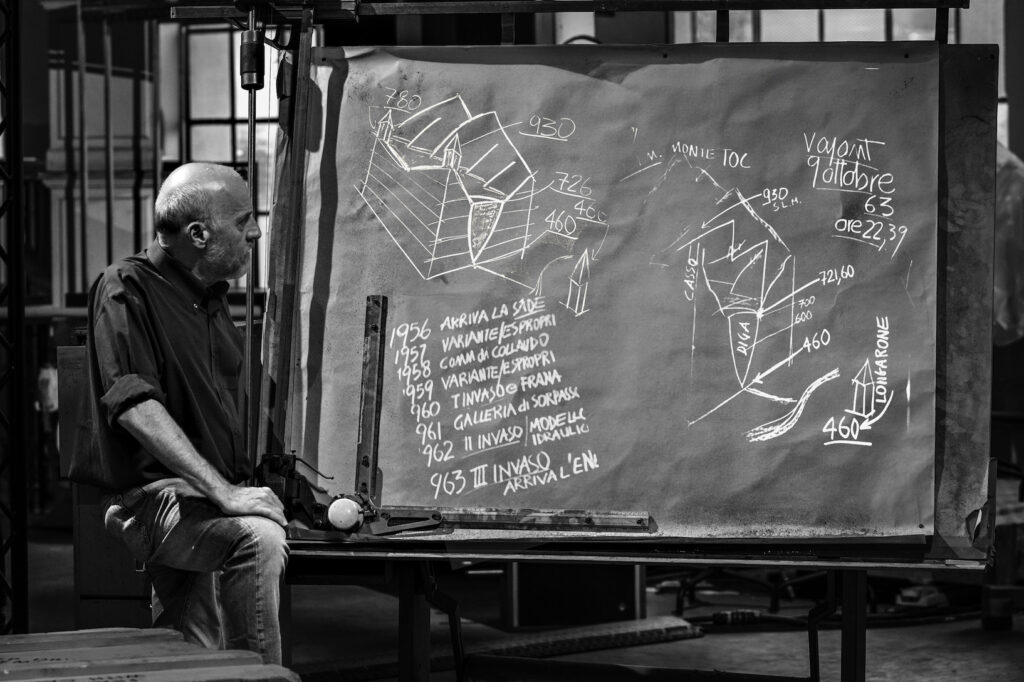 780
930
726
460
460
1956 ARRIVA LA SADE
1957 VARIANTE/ESPROPRI
1958 COMM di COLLAUDO
1959 VARIANTE/ESPROPRI
960 I INVASO e FRANA
961 GALLERIA di SORPASS
962 II INVASO/MODELLO IDRAULIC
963 III INVASO
ARRIVA L'EN
M. MONTE TOC
930
S.L.M.
CASSO
DIGA
721,60
700
600
460
LONGARONE
460
Vajont
9 Ottobre
63
ore 22,39